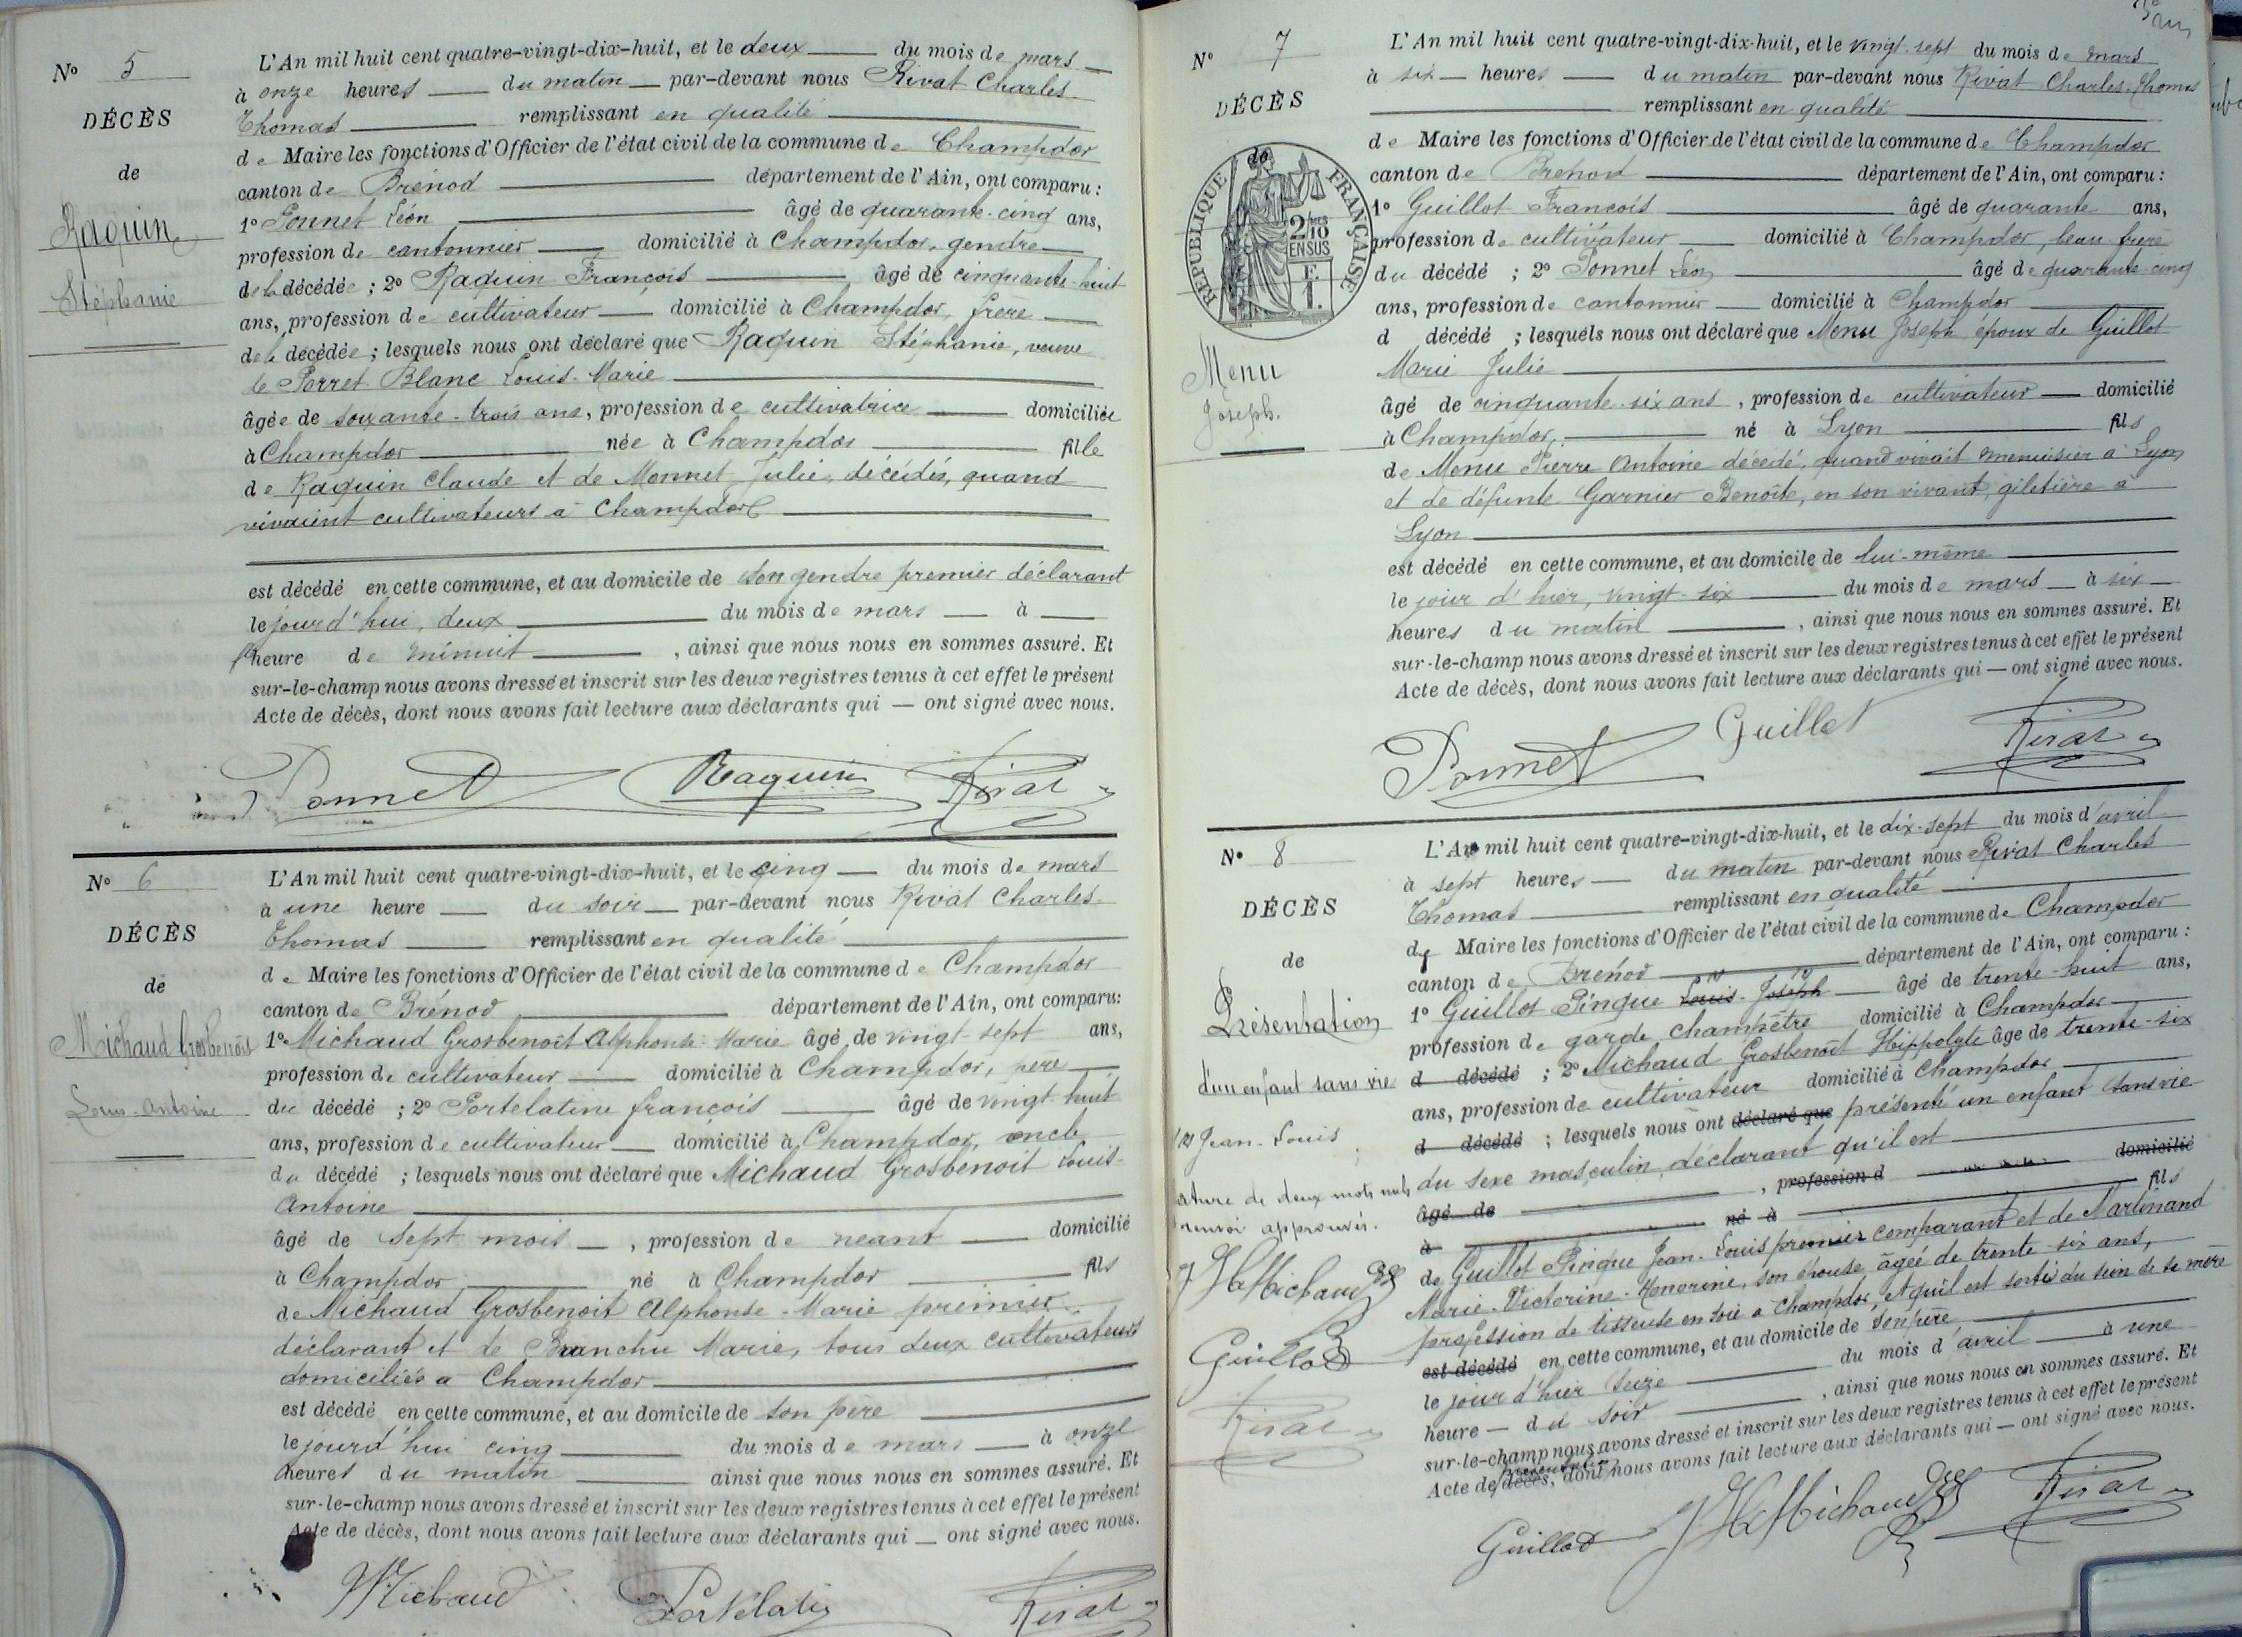 N° 5
DÉCÈS
de
Raquin
Stéphanie
L'An mil huit cent quatre-vingt-dix-huit, et le deux du mois de mars
à onze heures du matin par-devant nous Rivat Charles
Thomas remplissant en qualité
de Maire les fonctions d'Officier de l'état civil de la commune de Champdor
canton de Brénod département de l'Ain, ont comparu :
1° Ponnet Léon âgé de quarante-cinq ans,
profession de cantonnier domicilié à Champdor, gendre
de la décédée ; 2° Raquin François âgé de cinquante-huit
ans, profession de cultivateur domicilié à Champdor, frère
de la décédée ; lesquels nous ont déclaré que Raquin Stéphanie, veuve
de Perret Blanc Louis-Marie
âgée de soixante-trois ans, profession de cultivatrice domiciliée
à Champdor née à Champdor fille
de Raquin Claude et de Monnet Julie, décédés, quand
vivaient cultivateurs à Champdor
est décédé en cette commune, et au domicile de son gendre premier déclarant
le jourd'hui, deux du mois de mars à
heure de minuit , ainsi que nous nous en sommes assuré. Et
sur-le-champ nous avons dressé et inscrit sur les deux registres tenus à cet effet le présent
Acte de décès, dont nous avons fait lecture aux déclarants qui — ont signé avec nous.
Ponnet Raquin Rivat
N° 6
DÉCÈS
de
Michaud Grosbenoît
Louis-Antoine
L'An mil huit cent quatre-vingt-dix-huit, et le cinq du mois de mars
à une heure du soir par-devant nous Rivat Charles
Thomas remplissant en qualité
de Maire les fonctions d'Officier de l'état civil de la commune de Champdor
canton de Brénod département de l'Ain, ont comparu:
1° Michaud Grosbenoît Alphonse-Marie âgé de vingt-sept ans,
profession de cultivateur domicilié à Champdor, père
du décédé ; 2° Portelatine françois âgé de vingt-huit
ans, profession de cultivateur domicilié à Champdor, oncle
du décédé ; lesquels nous ont déclaré que Michaud Grosbenoit Louis-
Antoine
âgé de sept mois , profession de néant domicilié
à Champdor né à Champdor fils
de Michaud Grosbenoit Alphonse-Marie premier
déclarant et de Branchu Marie, tous deux cultivateurs
domiciliés à Champdor
est décédé en cette commune, et au domicile de son père
le jourd'hui cinq du mois de mars à onze
heures du matin ainsi que nous nous en sommes assuré. Et
sur-le-champ nous avons dressé et inscrit sur les deux registres tenus à cet effet le présent
Acte de décès, dont nous avons fait lecture aux déclarants qui — ont signé avec nous.
Michaud Portelatin Rivat
N° 7
DÉCÈS
de
RÉPUBLIQUE FRANÇAISE
2/10 EN SUS
F. 1.
Menu
Joseph.
L'An mil huit cent quatre-vingt-dix-huit, et le vingt-sept du mois de mars
à six heures du matin par-devant nous Rivat Charles-Thomas
remplissant en qualité
de Maire les fonctions d'Officier de l'état civil de la commune de Champdor
canton de Brénod département de l'Ain, ont comparu :
1° Guillot François âgé de quarante ans,
profession de cultivateur domicilié à Champdor, beau frère
du décédé ; 2° Ponnet Léon âgé de quarante-cinq
ans, profession de cantonnier domicilié à Champdor
d décédé ; lesquels nous ont déclaré que Menu Joseph époux de Guillot
Marie Julie
âgé de cinquante-six ans , profession de cultivateur domicilié
à Champdor, né à Lyon fils
de Menu Pierre Antoine décédé, quand vivait menuisier à Lyon
et de défunte Garnier Benoîte, en son vivant, giletière à
Lyon
est décédé en cette commune, et au domicile de lui-même
le jour d'hier, vingt-six du mois de mars à six
heures du matin , ainsi que nous nous en sommes assuré. Et
sur-le-champ nous avons dressé et inscrit sur les deux registres tenus à cet effet le présent
Acte de décès, dont nous avons fait lecture aux déclarants qui — ont signé avec nous.
Ponnet Guillot Rivat
N° 8
DÉCÈS
de
Présentation
d'un enfant sans vie
(1) Jean-Louis
rature de deux mots nuls
renvoi approuvés.
Michaud
Guillot
Rivat
L'An mil huit cent quatre-vingt-dix-huit, et le dix-sept du mois d'avril
à sept heures du matin par-devant nous Rivat Charles
Thomas remplissant en qualité
de Maire les fonctions d'Officier de l'état civil de la commune de Champdor
canton de Brénod département de l'Ain, ont comparu :
1° Guillot Pingue Louis-Joseph âgé de trente-huit ans,
profession de garde champêtre domicilié à Champdor
d décédé ; 2° Michaud Grosbenoît Hippolyte âgé de trente-six
ans, profession de cultivateur domicilié à Champdor
d décédé ; lesquels nous ont déclaré que présenté un enfant sans vie
du sexe masculin, déclarant qu'il est
âgé de , profession d domicilié
à né à fils
de Guillot Pingue Jean-Louis premier comparant et de Martinand
Marie-Victorine-Honorine, son épouse, âgée de trente-six ans,
profession de tisseuse en soie à Champdor, et qu'il est sorti du sein de sa mère
est décédé en cette commune, et au domicile de son père
le jour d'hier seize du mois d'avril à une
heure du soir , ainsi que nous nous en sommes assuré. Et
sur-le-champ nous avons dressé et inscrit sur les deux registres tenus à cet effet le présent
Acte de décès, présentation dont nous avons fait lecture aux déclarants qui — ont signé avec nous.
Guillot Michaud Rivat